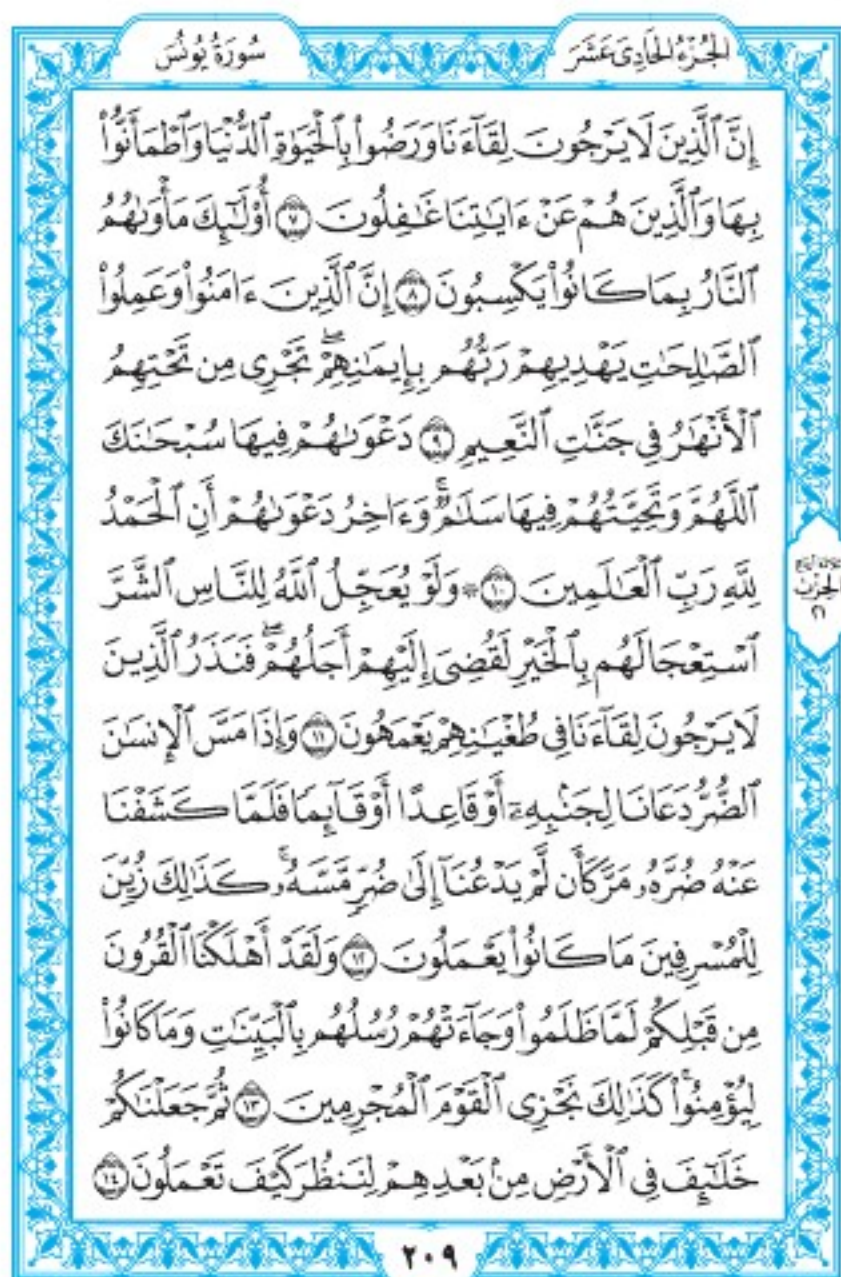 الجُزْءُ الحَادِي عَشَرَ
سُورَةُ يُونُسَ
إِنَّ ٱلَّذِينَ لَا يَرْجُونَ لِقَآءَنَا وَرَضُوا۟ بِٱلْحَيَوٰةِ ٱلدُّنْيَا وَٱطْمَأَنُّوا۟
بِهَا وَٱلَّذِينَ هُمْ عَنْ ءَايَٰتِنَا غَٰفِلُونَ ٧ أُو۟لَٰٓئِكَ مَأْوَىٰهُمُ
ٱلنَّارُ بِمَا كَانُوا۟ يَكْسِبُونَ ٨ إِنَّ ٱلَّذِينَ ءَامَنُوا۟ وَعَمِلُوا۟
ٱلصَّٰلِحَٰتِ يَهْدِيهِمْ رَبُّهُم بِإِيمَٰنِهِمْ ۖ تَجْرِى مِن تَحْتِهِمُ
ٱلْأَنْهَٰرُ فِى جَنَّٰتِ ٱلنَّعِيمِ ٩ دَعْوَىٰهُمْ فِيهَا سُبْحَٰنَكَ
ٱللَّهُمَّ وَتَحِيَّتُهُمْ فِيهَا سَلَٰمٌ ۚ وَءَاخِرُ دَعْوَىٰهُمْ أَنِ ٱلْحَمْدُ
لِلَّهِ رَبِّ ٱلْعَٰلَمِينَ ١٠ ۞ وَلَوْ يُعَجِّلُ ٱللَّهُ لِلنَّاسِ ٱلشَّرَّ
ثلاثة أرباع
الحزب
٢١
ٱسْتِعْجَالَهُم بِٱلْخَيْرِ لَقُضِىَ إِلَيْهِمْ أَجَلُهُمْ ۖ فَنَذَرُ ٱلَّذِينَ
لَا يَرْجُونَ لِقَآءَنَا فِى طُغْيَٰنِهِمْ يَعْمَهُونَ ١١ وَإِذَا مَسَّ ٱلْإِنسَٰنَ
ٱلضُّرُّ دَعَانَا لِجَنۢبِهِۦٓ أَوْ قَاعِدًا أَوْ قَآئِمًا فَلَمَّا كَشَفْنَا
عَنْهُ ضُرَّهُۥ مَرَّ كَأَن لَّمْ يَدْعُنَآ إِلَىٰ ضُرٍّ مَّسَّهُۥ ۚ كَذَٰلِكَ زُيِّنَ
لِلْمُسْرِفِينَ مَا كَانُوا۟ يَعْمَلُونَ ١٢ وَلَقَدْ أَهْلَكْنَا ٱلْقُرُونَ
مِن قَبْلِكُمْ لَمَّا ظَلَمُوا۟ وَجَآءَتْهُمْ رُسُلُهُم بِٱلْبَيِّنَٰتِ وَمَا كَانُوا۟
لِيُؤْمِنُوا۟ ۚ كَذَٰلِكَ نَجْزِى ٱلْقَوْمَ ٱلْمُجْرِمِينَ ١٣ ثُمَّ جَعَلْنَٰكُمْ
خَلَٰٓئِفَ فِى ٱلْأَرْضِ مِنۢ بَعْدِهِمْ لِنَنظُرَ كَيْفَ تَعْمَلُونَ ١٤
٢٠٩